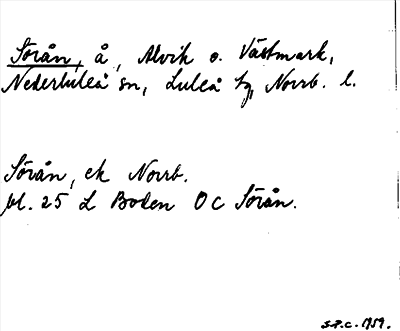 Sörån, å, Alvik o. Västmark,
Nederluleå sn, Luleå tg, Norrb. l.
Sörån, ek Norrb.
bl. 25 L Boden OC Sörån.
S.P.C. 1959.